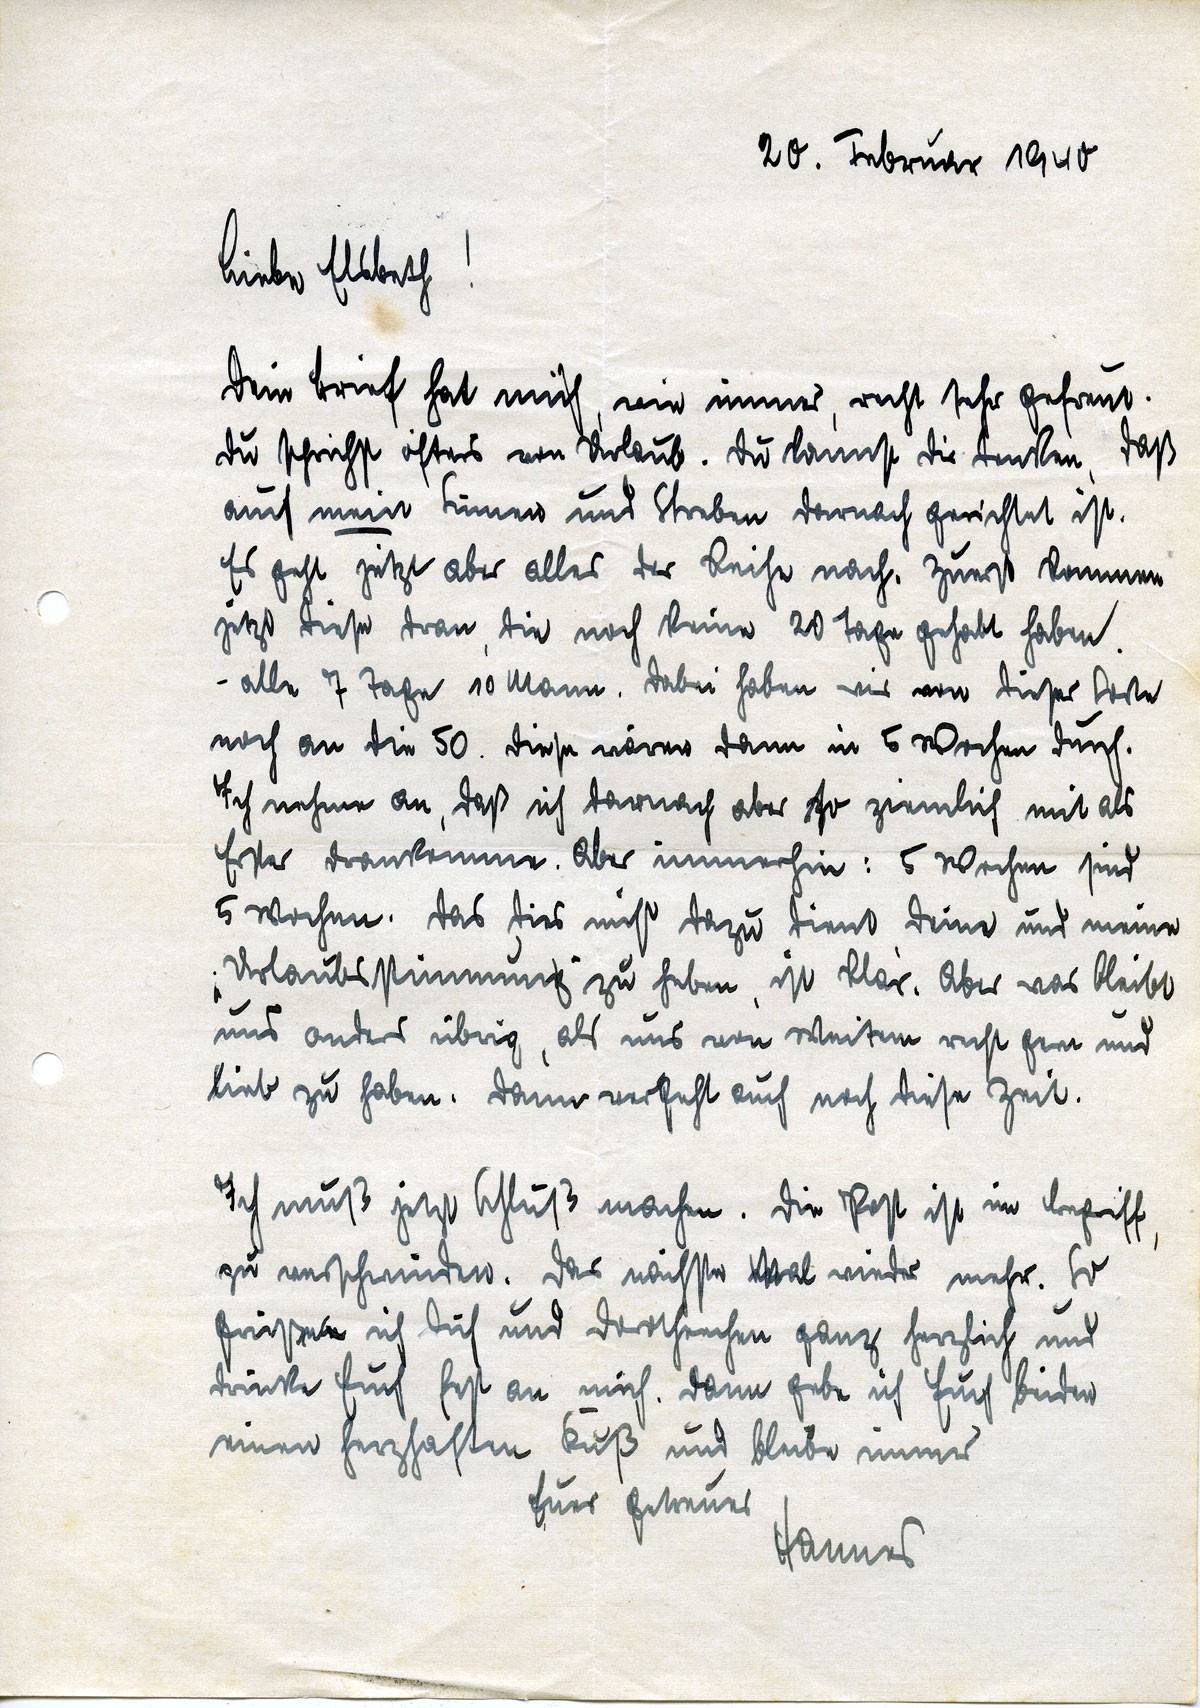 20. Februar 1940
Liebe Elsbeth!
Dein Brief hat mich, wie immer, recht sehr gefreut.
Du schriebst öfters von Urlaub. Du kannst Dir denken, daß
auch mein Sinnen und Streben darnach gerichtet ist.
Es geht jetzt aber alles der Reihe nach. Zuerst kommen
jetzt diese dran, die noch keine 20 Tage gehabt haben.
- alle 7 Tage 10 Mann. Dabei haben wir von dieser Sorte
noch an die 50. Diese wären dann in 5 Wochen durch.
Ich nehme an, daß ich darnach aber so ziemlich mit als
Erster drankomme. Aber immerhin: 5 Wochen sind
5 Wochen. Das dies nicht dazu dient Deine und meine
"Urlaubsstimmung" zu heben, ist klar. Aber was bleibt
uns anders übrig, als uns von Weitem recht gern und
lieb zu haben. Dann vergeht auch noch diese Zeit.
Ich muß jetzt Schluß machen. Die Post ist im Begriff,
zu verschwinden. Das nächste Mal wieder mehr. So
grüße ich Dich und Dorotheechen ganz herzlich und
drücke Euch fest an mich. Dann gebe ich Euch beiden
einen herzhaften Kuß und bleibe immer
Euer getreuer
Hannes